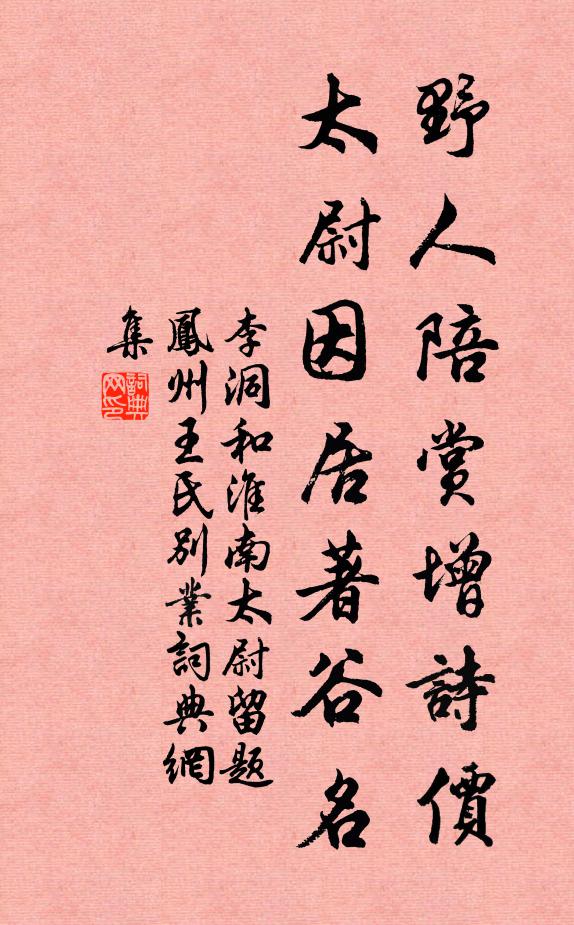 野人陪賞增詩價
太尉因居著谷名
李洞和淮南太尉留题
鳳州王氏別業詞典網
集
詞典
网印